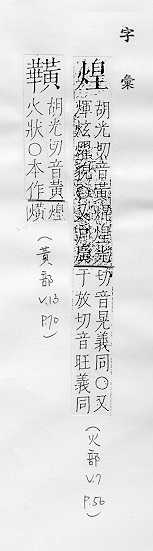 字彙
煌
胡光切音黃
切音晃義同〇又
煇炫耀貌〇又
于放切音旺義同
(火部 V.7 P.56)
胡光切音黃煌
火狀〇本作
(黃部 V.13 P.70)